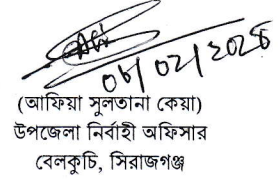 ০৮/০২/২০২৬
(আফিয়া সুলতানা কেয়া)
উপজেলা নির্বাহী অফিসার
বেলকুচি, সিরাজগঞ্জ